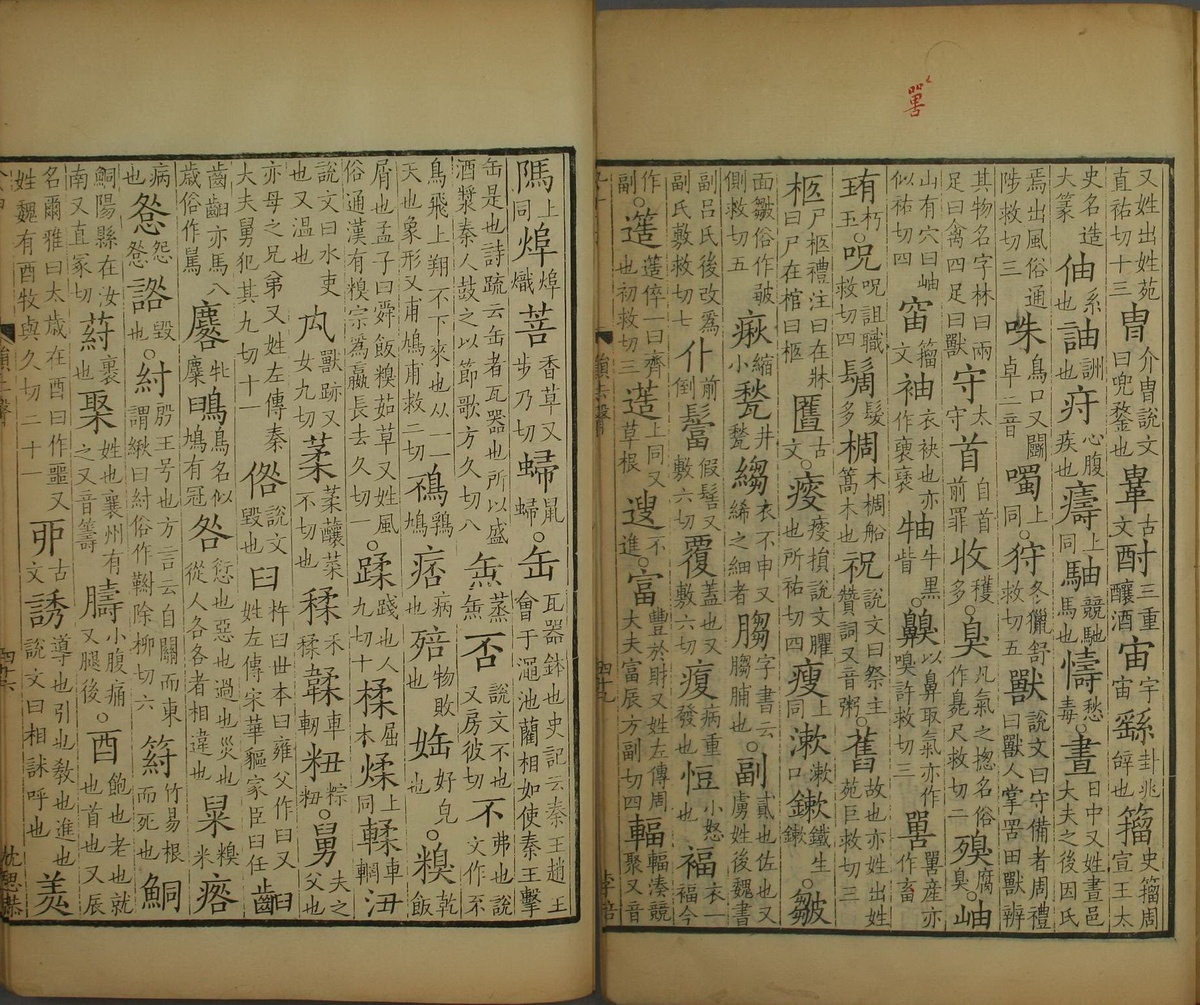 又姓出姓苑直祐切十三胄介胄說文曰兜鍪也古文酎三重釀酒宙宇宙繇卦兆辭也籀史籀周宣王太
史名造大篆伷系也詶訓也疛心腹疾也上同駎競馳馬也懤愁毒。晝日中又姓晝邑大夫之後因氏
焉出風俗通陟救切三咮鳥口又鬬卓二音噣上同。狩冬獵舒救切五獸說文曰守備者周禮曰獸人掌罟田獸辨
其物名字林曰兩足曰禽四足曰獸守太守首自首前罪收穫多。臭凡氣之揔名俗作臰尺救切二殠腐臭。岫
山有穴曰岫似祐切四籀文袖衣袂也亦作褎褏牰牛黑眥。齅以鼻取氣亦作嗅許救切三嘼嘼產亦作畜
珛朽玉。呪呪詛職救切四髮多椆木椆船篙木也祝說文曰祭主贊詞又音粥。舊故也亦姓出姓苑巨救切三
柩尸柩禮注曰在牀曰尸在棺曰柩匶古文。㾭㾭損說文臞也所祐切四瘦上同漱漱口鏉鐵生鏉。皺
面皺俗作皱側救切五瘷縮小甃井甃縐衣不申又絺之細者字書云脯也。副貳也佐也又虜姓後魏書
副呂氏後改爲副氏敷救切七仆前倒假髻又敷六切覆蓋也又敷六切病重發也小怒也福衣一福今
作副。簉簉倅一曰齊也初救切三上同又草根不進。富豐於財又姓左傳周大夫富辰方副切四輻輻湊競聚又音
嘼
上同熾菩香草又步乃切鼠。缶瓦器鉢也史記云秦王趙王會于澠池藺相如使秦王擊
缶是也詩疏云缶者瓦器也所以盛酒漿秦人鼓之以節歌方久切八缹蒸缹否說文不也又房彼切不弗也說文作
鳥飛上翔不下來也从一一天也象形又甫鳩甫救二切鶉鳩痞病也殕物敗也好皃。糗乾飯
屑也孟子曰舜飯糗茹草又姓風俗通漢有糗宗爲嬴長去久切一。蹂踐也人九切十楺屈木煣上同輮車輞沑
說文曰水吏也又溫也禸獸跡又女九切葇葇釀菜不切也禾鞣車軔粈粽粈。舅夫之父也
亦母之兄弟又姓左傳秦大夫舅犯其九切十一倃說文毀也臼杵臼世本曰雍父作臼又姓左傳宋華貙家臣曰任齨
齒齨亦馬八歲俗作麔牝麋鳥名似鳩有冠咎愆也惡也過也災也從人各各者相違也糗米
病也怨也毀也。紂殷王号也方言云自關而東謂緧曰紂俗作除柳切六竹易根而死也鮦
鮦陽縣在汝南又直冢切葤裹也姓也襄州有之又音籌小腹痛又腿後。酉飽也老也就也首也又辰
名爾雅曰太歲在酉曰作噩又姓魏有酉牧與久切二十一丣古文誘導也引也教也進也說文曰相訹呼也羑